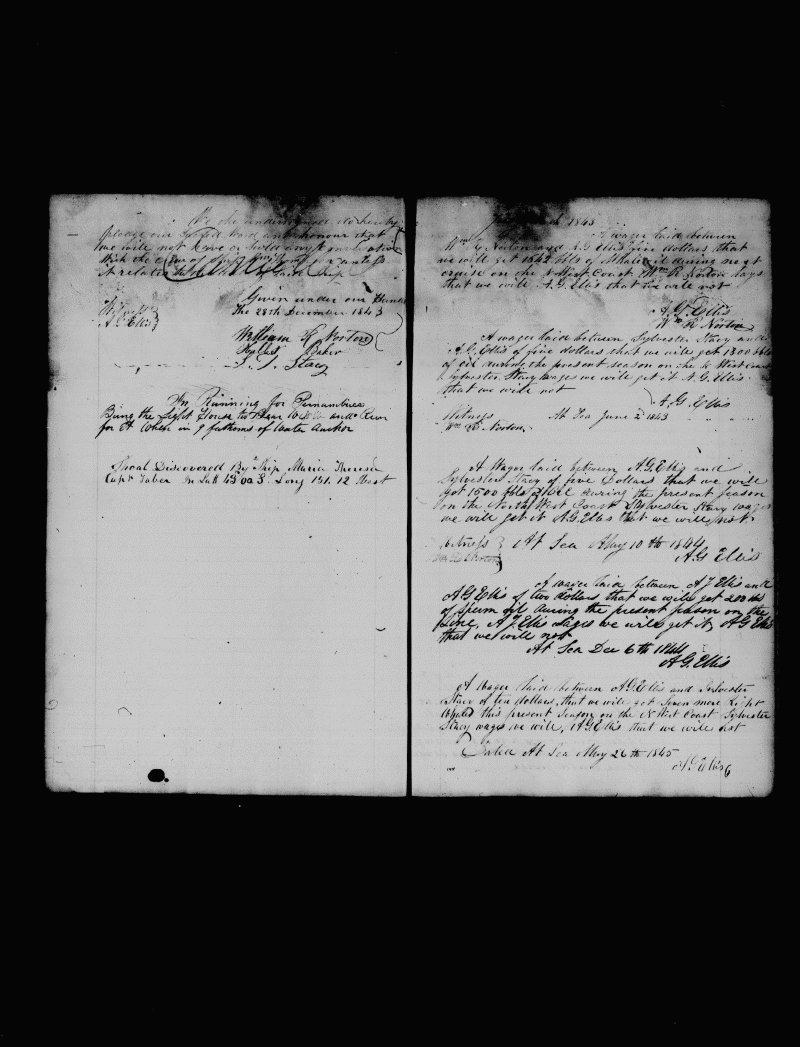 We the undersigned do hereby
pledge our sacred word and honour that
we will not have or hold any
with the
it relates to the
Given under our Hands
Witness
The 28th December 1843
A G Ellis
William R Norton
Baker
Stacy
In Running for Pernambuco
Bring the Light House to Bear W and Run
for it When in 9 fathoms of water Anchor
Shoal Discovered By Ship Maria Theresa
Capt Taber In Latt Long 151.12 West
1843
A wager laid between
Wm R Norton and A.G Ellis five dollars that
we will get bbls of Whale oil during next
cruise on the N West Coast Wm R Norton says
that we will A.G Ellis that we will not
A.G. Ellis
Wm R Norton
A wager laid between Sylvester Stacy and
A.G Ellis of five dollars that we will get 1800 bbls
of oil during the present season on the N West coast
Sylvester Stacy wages we will get it A.G Ellis
that we will not
A.G Ellis
Witness At Sea June 2d 1843
Wm R Norton
A Wager laid between A.G Ellis and
Sylvester Stacy of five Dollars that we will
get 1500 bbls Oil during the present season
on the North West Coast Sylvester Stacy wages
we will get it A.G Ellis that we will not
Witness At Sea May 10th 1844
Norton A.G Ellis
A wager laid between A J Ellis and
A G Ellis of two dollars that we will get 200 bbls
of Sperm oil during the present season on the
Line. A J Ellis wages we will get it A G Ellis
that we will not
At Sea Dec 6th 1844
A G. Ellis
A Wager laid between A.G Ellis and Sylvester
Stacy of ten dollars that we will get Seven more Right
Whales this present Season on the N West Coast Sylvester
Stacy wages we will, A.G Ellis that we will not
Dated At Sea May 26th 1845
A.G Ellis